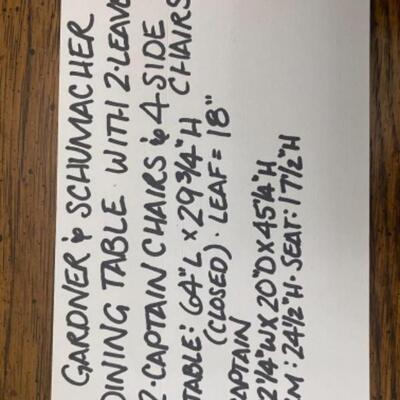 GARDNER & SCHUMACHER
DINING TABLE WITH 2-LEAVE
2-CAPTAIN CHAIRS & 4-SIDE
CHAIRS
TABLE: 64"L × 29 3/4"H
(CLOSED). LEAF = 18"
CAPTAIN
2 1/4"W X 20"D X 45 1/4"H
M: 24 1/2"H. SEAT: 17 1/2"H